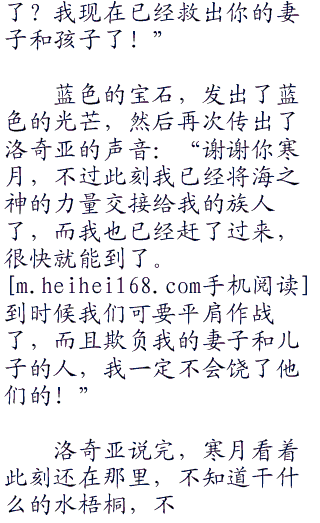 了？我现在已经救出你的妻
子和孩子了！”
蓝色的宝石，发出了蓝
色的光芒，然后再次传出了
洛奇亚的声音：“谢谢你寒
月，不过此刻我已经将海之
神的力量交接给我的族人
了，而我也已经赶了过来，
很快就能到了。
[m.heihei168.com手机阅读]
到时候我们可要平肩作战
了，而且欺负我的妻子和儿
子的人，我一定不会饶了他
们的！”
洛奇亚说完，寒月看着
此刻还在那里，不知道干什
么的水梧桐，不